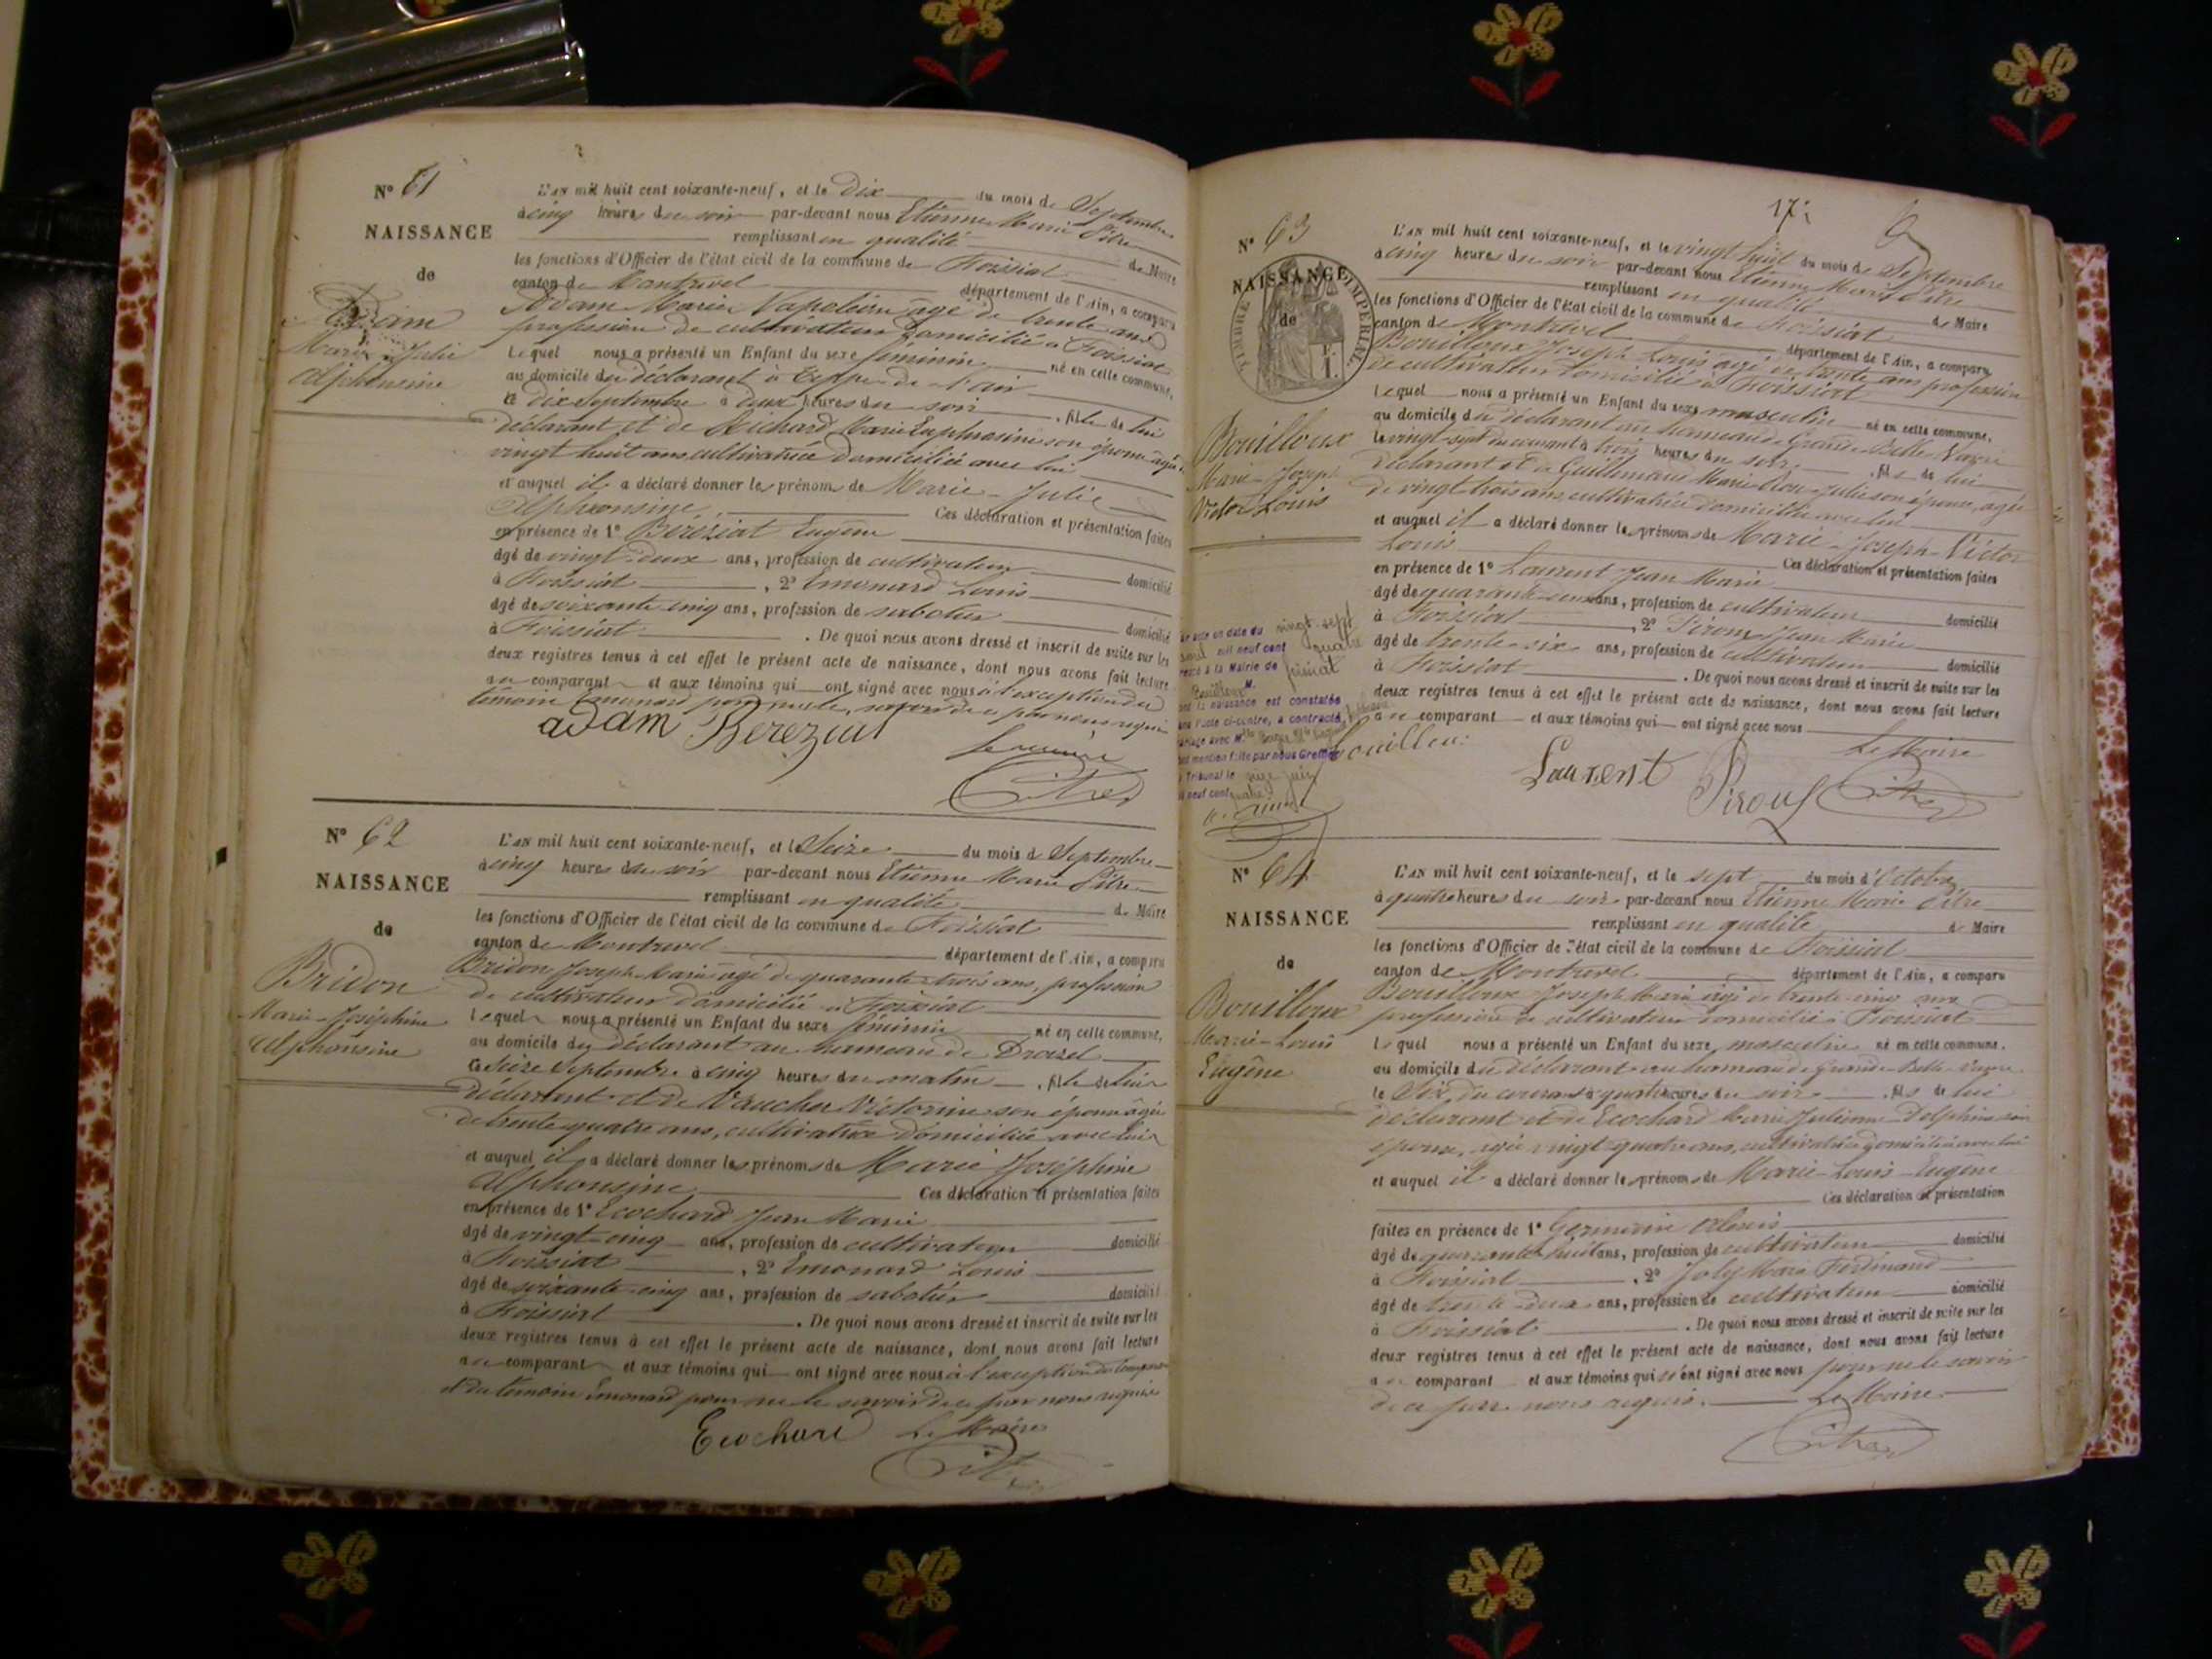 N° 61
NAISSANCE
de
Adam
Marie Julie
Alphonsine
L'AN mil huit cent soixante-neuf, et le Dix du mois de Septembre
à cinq heures du soir par-devant nous Etienne Marie Pitre
remplissant en qualité de Maire
les fonctions d'Officier de l'état civil de la commune de Foissiat
canton de Montrevel département de l'Ain, a comparu
Adam Marie Napoléon agé de trente ans
profession de cultivateur domicilié à Foissiat
Lequel nous a présenté un Enfant du sexe féminin né en cette commune,
au domicile du déclarant à
le dix Septembre à deux heures du soir fille de lui
déclarant et de Richard Marie Euphrosine son épouse agée
vingt huit ans cultivatrice domiciliée avec lui
et auquel il a déclaré donner les prénoms de Marie-Julie
Alphonsine, Ces déclaration et présentation faites
en présence de 1° Bereziat Eugène
âgé de vingt-deux ans, profession de cultivateur domicilié
à Foissiat, 2° Emonard Louis
âgé de soixante cinq ans, profession de sabotier domicilié
à Foissiat. De quoi nous avons dressé et inscrit de suite sur les
deux registres tenus à cet effet le présent acte de naissance, dont nous avons fait lecture
au comparant et aux témoins qui ont signé avec nous à l'exception du
témoin Emonard pour ne le savoir de ce par nous requis
adam Bereziat
Le maire
Pitre
N° 62
NAISSANCE
de
Bridon
Marie-Joséphine
Alphonsine
L'AN mil huit cent soixante-neuf, et le Seize du mois de Septembre
à cinq heures du soir par-devant nous Etienne Marie Pitre
remplissant en qualité de Maire
les fonctions d'Officier de l'état civil de la commune de Foissiat
canton de Montrevel département de l'Ain, a comparu
Bridon Joseph Marie agé de quarante-trois ans, profession
de cultivateur domicilié à Foissiat
Lequel nous a présenté un Enfant du sexe féminin né en cette commune,
au domicile du déclarant au hameau de
le Seize Septembre à cinq heures du matin, fille de lui
déclarant et de Vaucher Victorine son épouse âgée
de trente quatre ans, cultivatrice domiciliée avec lui
et auquel il a déclaré donner les prénoms de Marie Joséphine
Alphonsine Ces déclaration et présentation faites
en présence de 1° Ecochard Jean Marie
âgé de vingt-cinq ans, profession de cultivateur domicilié
à Foissiat, 2° Emonard Louis
âgé de soixante-cinq ans, profession de sabotier domicilié
à Foissiat. De quoi nous avons dressé et inscrit de suite sur les
deux registres tenus à cet effet le présent acte de naissance, dont nous avons fait lecture
au comparant et aux témoins qui ont signé avec nous à l'exception du comparant
et du témoin Emonard pour ne le savoir de ce par nous requis
Ecochard Le Maire
Pitre
17
N° 63
NAISSANCE
de
TIMBRE IMPERIAL
F.
1.
Bouilloux
Marie-Joseph
Victor Louis
L'AN mil huit cent soixante-neuf, et le vingt huit du mois de Septembre
à cinq heures du soir par-devant nous Etienne Marie Pitre
remplissant en qualité de Maire
les fonctions d'Officier de l'état civil de la commune de Foissiat
canton de Montrevel département de l'Ain, a comparu
Bouilloux Joseph Louis agé de trente ans profession
de cultivateur domicilié à Foissiat
Lequel nous a présenté un Enfant du sexe masculin né en cette commune,
au domicile du déclarant au hameau de Grande Belle Vavre
le vingt-sept du courant à trois heures du soir, fils de lui
déclarant et de Guillemaud Marie Rose Julie son épouse, agée
de vingt trois ans cultivatrice domiciliée avec lui
et auquel il a déclaré donner les prénoms de Marie-Joseph-Victor
Louis Ces déclaration et présentation faites
en présence de 1° Laurent Jean Marie
âgé de quarante ans, profession de cultivateur domicilié
à Foissiat, 2° Piroux Jean Marie
âgé de trente-six ans, profession de cultivateur domicilié
à Foissiat. De quoi nous avons dressé et inscrit de suite sur les
deux registres tenus à cet effet le présent acte de naissance, dont nous avons fait lecture
au comparant et aux témoins qui ont signé avec nous
Le Maire
Bouilloux Laurent Piroux Pitre
acte en date du vingt-sept
avril mil neuf cent quatre
à la Mairie de Foissiat
M. Bouilloux
dont la naissance est constatée
dans l'acte ci-contre, a contracté
mariage avec
mention faite par nous Greffier
Tribunal le juin
neuf cent quatre
N° 64
NAISSANCE
de
Bouilloux
Marie-Louis
Eugène
L'AN mil huit cent soixante-neuf, et le sept du mois d'Octobre
à quatre heures du soir par-devant nous Etienne Marie Pitre
remplissant en qualité de Maire
les fonctions d'Officier de l'état civil de la commune de Foissiat
canton de Montrevel département de l'Ain, a comparu
Bouilloux Joseph Marie agé de trente-cinq ans
profession de cultivateur domicilié à Foissiat
Lequel nous a présenté un Enfant du sexe masculin né en cette commune,
au domicile du déclarant au hameau de grande Belle-Vavre
le Six du courant à quatre heures du soir, fils de lui
déclarant et de Ecochard Marie Julienne Delphine son
épouse, agée vingt quatre ans, cultivatrice domiciliée avec lui
et auquel il a déclaré donner les prénoms de Marie-Louis-Eugène
Ces déclaration et présentation
faites en présence de 1° Germain Alexis
âgé de quarante huit ans, profession de cultivateur domicilié
à Foissiat, 2° Joly Marie Ferdinand
âgé de trente-deux ans, profession de cultivateur domicilié
à Foissiat. De quoi nous avons dressé et inscrit de suite sur les
deux registres tenus à cet effet le présent acte de naissance, dont nous avons fait lecture
au comparant et aux témoins qui n'ont signé avec nous pour ne le savoir
de ce par nous requis. Le Maire
Pitre